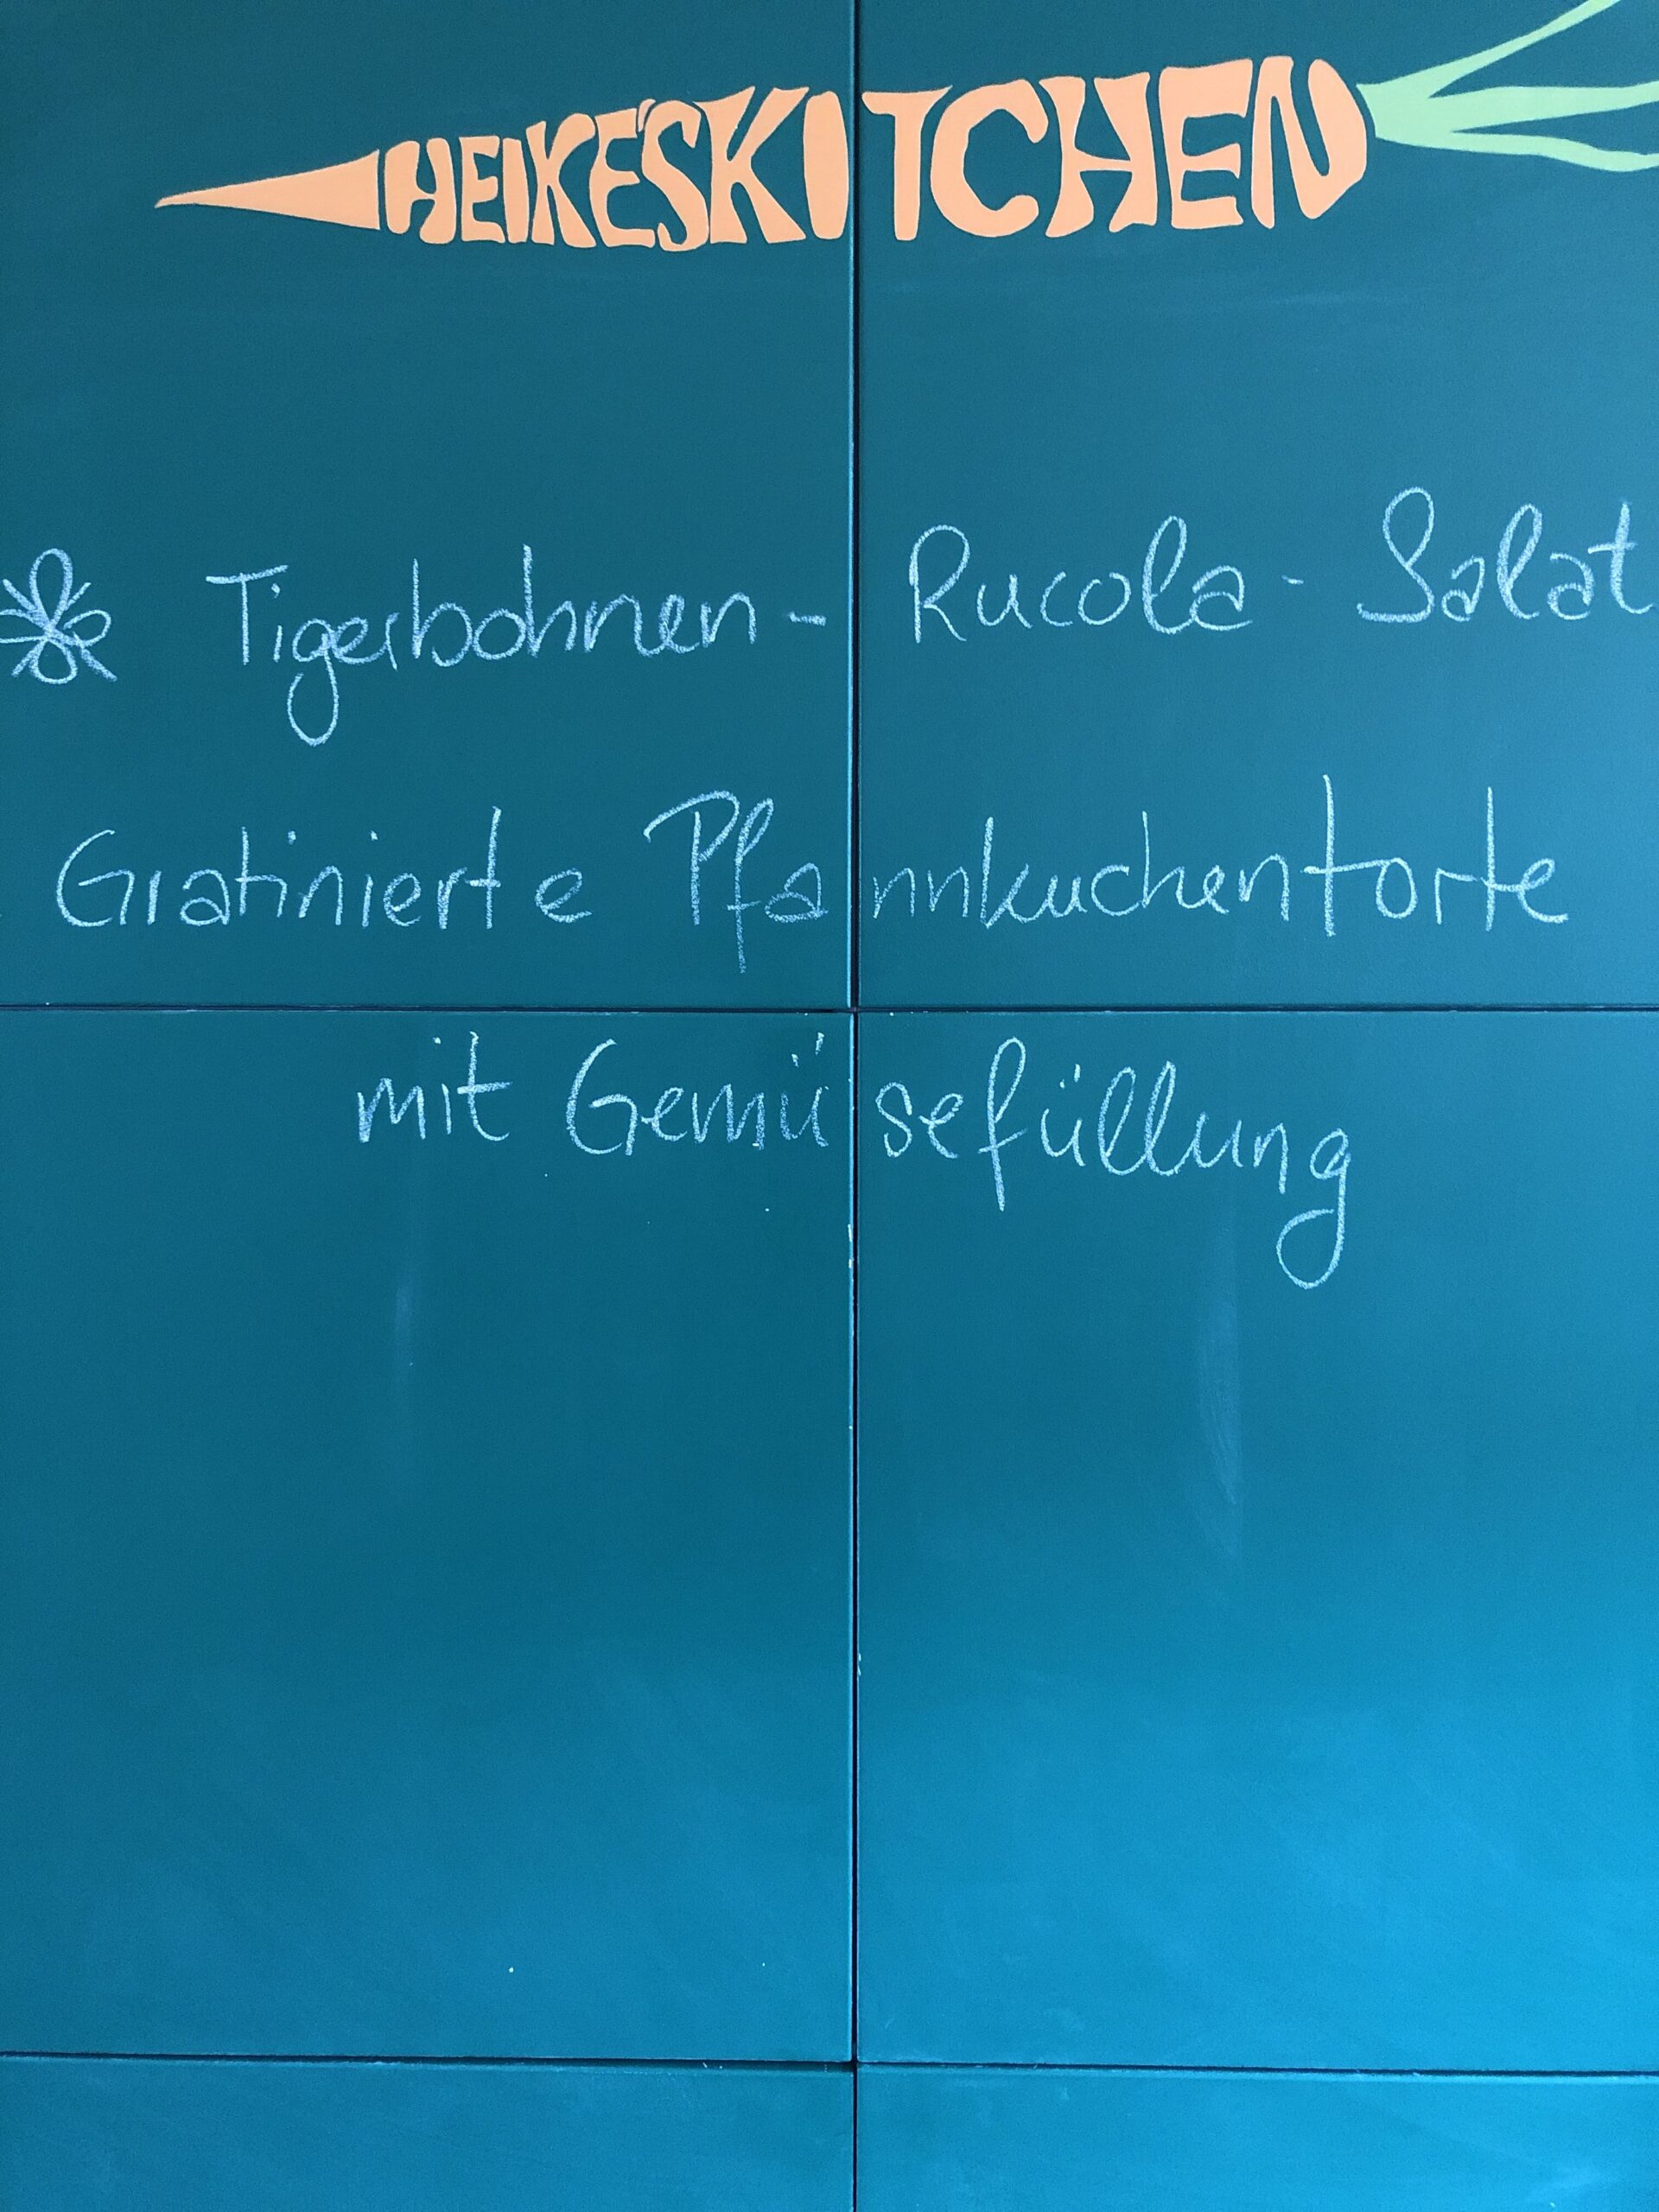 HEIKE'S KITCHEN
Tigerbohnen - Rucola - Salat
Gratinierte Pfannkuchentorte
mit Gemüsefüllung